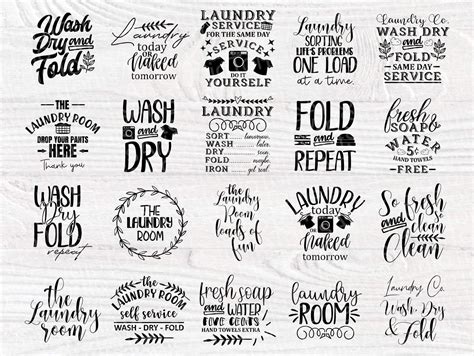 Wash
Dry and
Fold
Laundry
today
or
Naked
tomorrow
LAUNDRY
SERVICE
FOR THE SAME DAY
SERVICE
DO IT
YOURSELF
Laundry
SORTING
LIFE'S PROBLEMS
ONE LOAD
at a time.
Laundry Co.
WASH DRY
AND
FOLD
SAME DAY
SERVICE
THE
LAUNDRY ROOM
DROP YOUR PANTS
HERE
Thank you
WASH
and
DRY
LAUNDRY
SORT tomorrow.
WASH later.
DRY soon.
FOLD maybe.
IRON get real.
FOLD
and
REPEAT
fresh
SOAP &
WATER
5¢
HAND TOWELS
FREE
WASH
Dry
FOLD
repeat
THE
LAUNDRY
ROOM
the
Laundry
Room
loads of
fun
LAUNDRY
today
or
Naked
tomorrow
So fresh
and
so clean
Clean
the
Laundry
room
THE
LAUNDRY ROOM
self service
WASH - DRY - FOLD
fresh soap
and WATER
FIVE CENTS
HAND TOWELS EXTRA
laundry
ROOM
Laundry Co.
Wash, Dry
& Fold